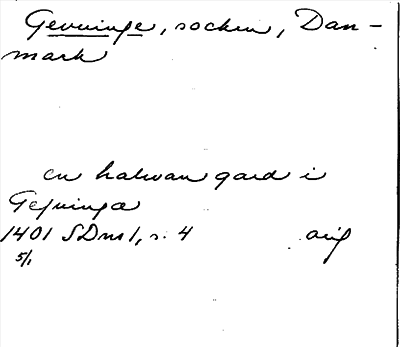 Gevninge, socken, Dan-
mark
en halwan gard i
Gefninga
1401 SDns1, s. 4 avs
5/1